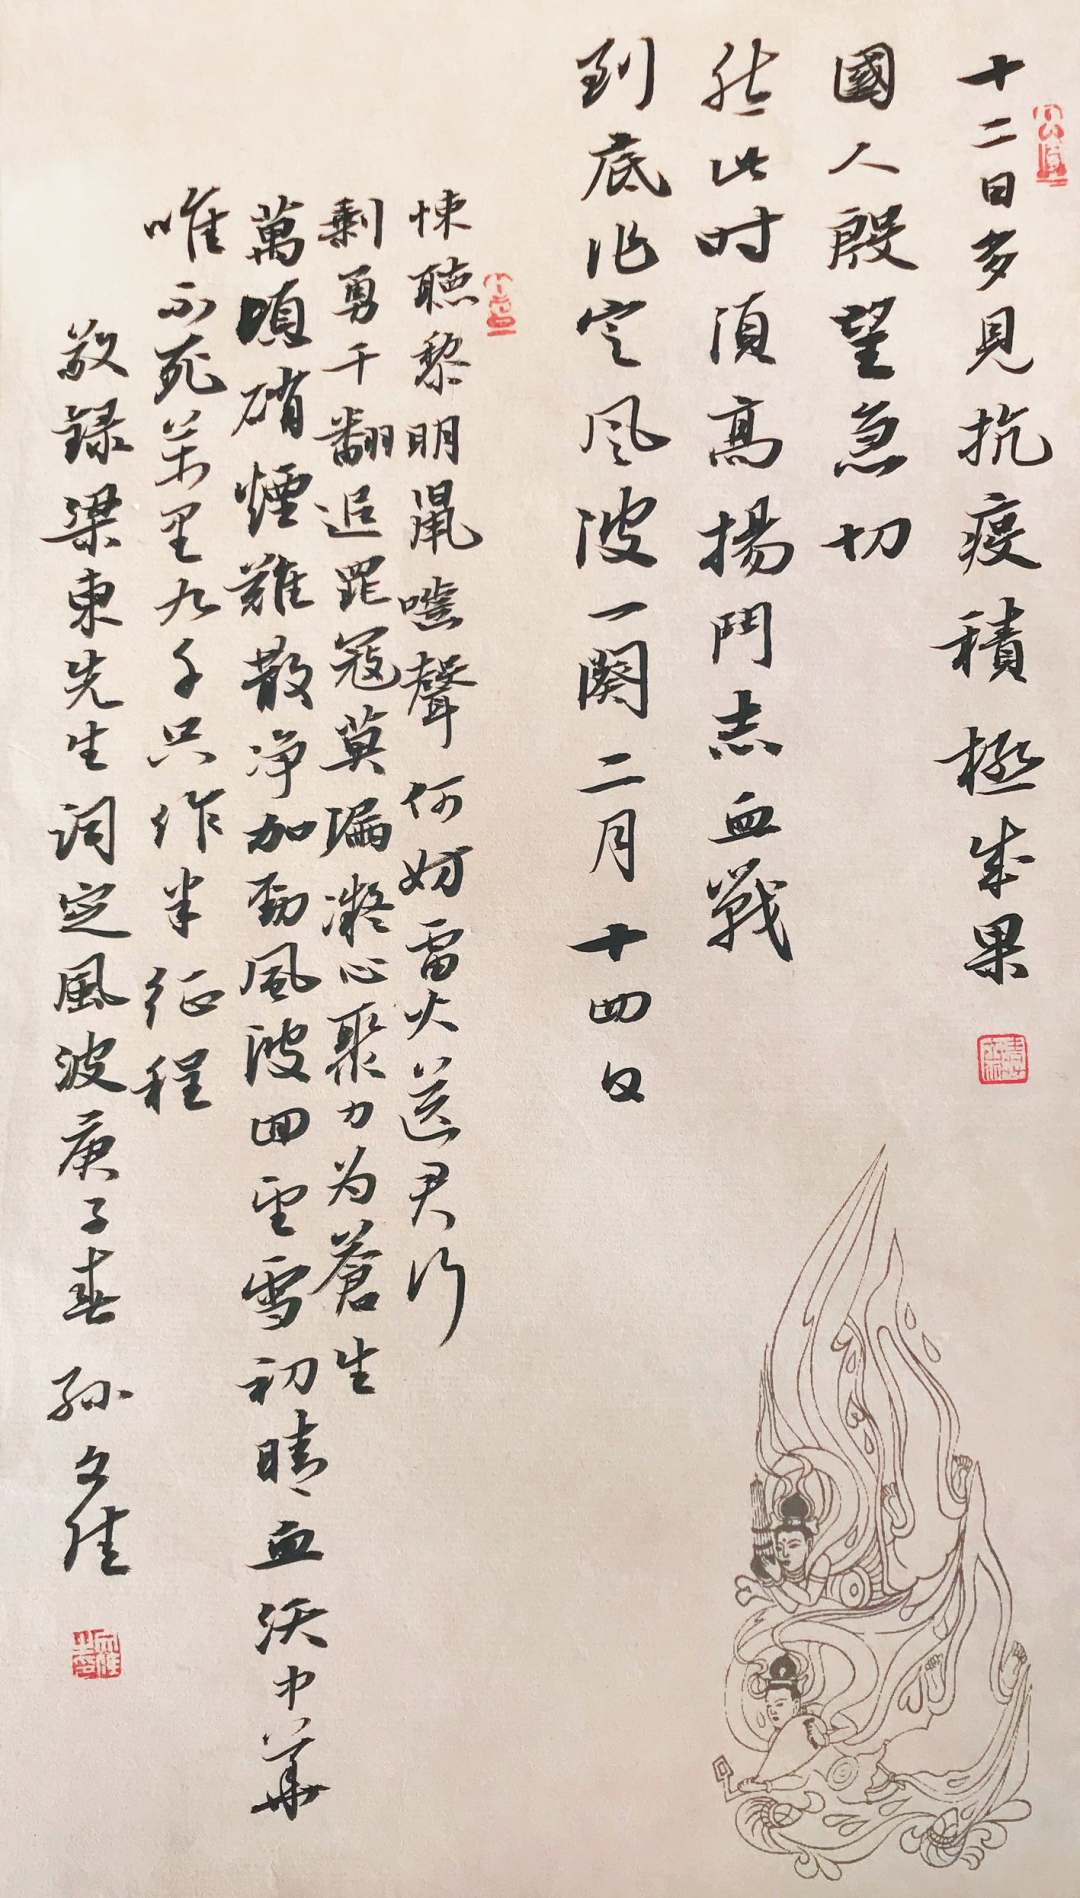 十二日多見抗疫積極成果
國人殷望急切
然此时須高揚鬥志血戰
到底作定风波一闋二月十四日
悚聽黎明鼠噬聲何妨雷火送君行
剩勇千翻追罷寇莫漏凝心聚力为蒼生
萬頃硝煙難散净加勁風波回望雪初晴血沃中華
唯不死萬里九千只作半征程
敬録梁東先生詞定風波庚子春孫文佳